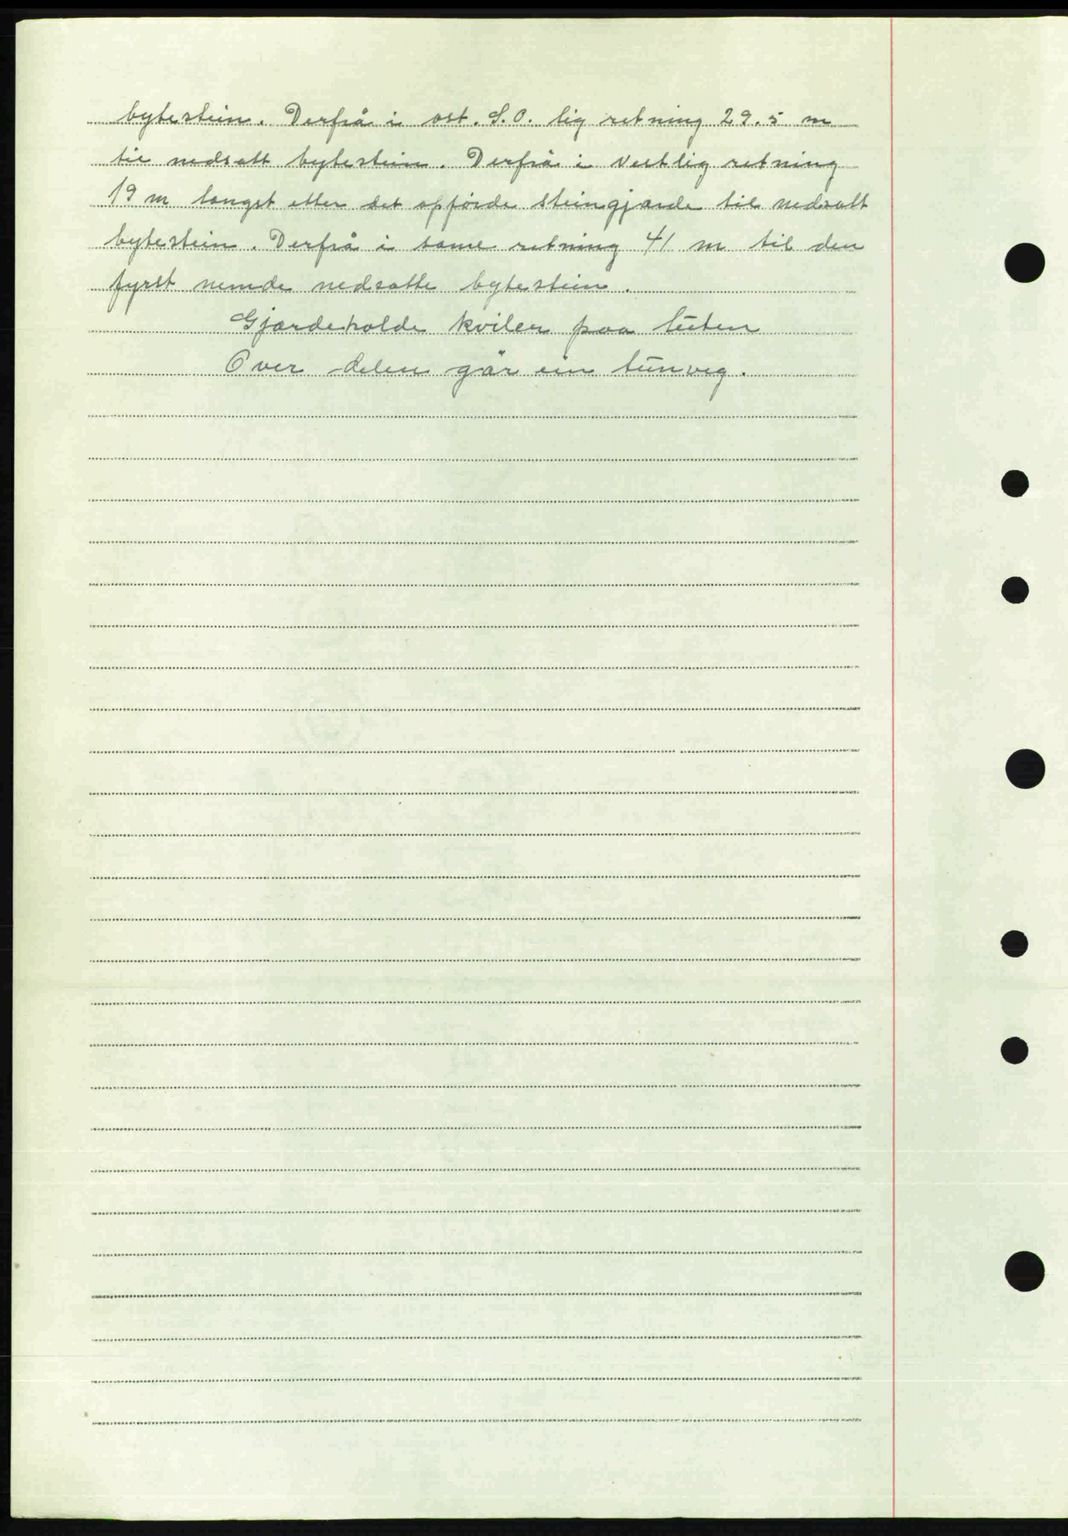 bytestein. Derfrå i ost. S.O. lig retning 29.5 m
til nedsatt bytestein. Derfrå i vestlig retning
19 m langst etter det opförde steingjærde til nedsatt
bytestein. Derfrå i same retning 41 m til den
fyrst nemde nedsatte bytestein.
Gjærdeholde kviler paa
Over delen går ein tunveg.